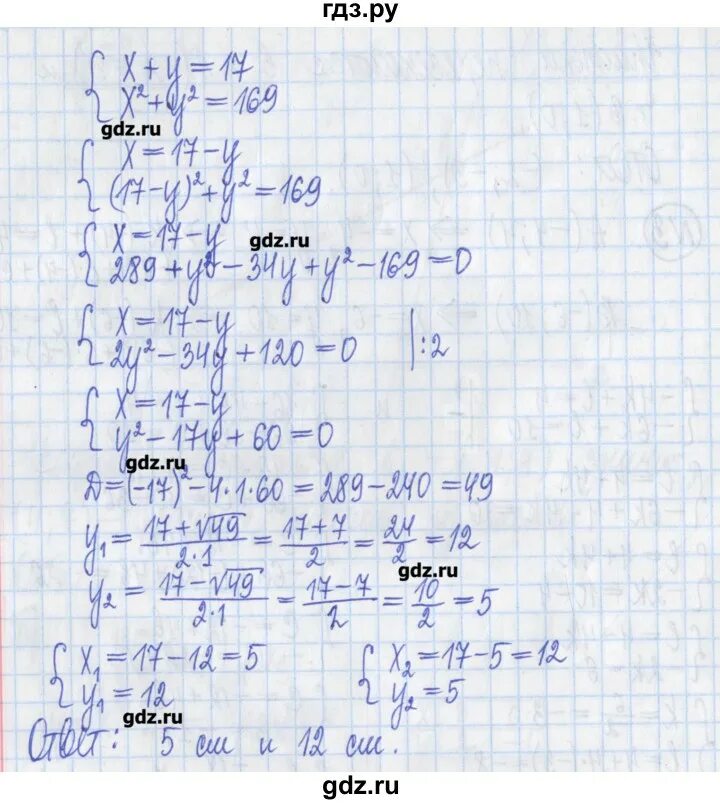 гдз.ру
x + y = 17
x² + y² = 169
gdz.ru
x = 17 - y
(17 - y)² + y² = 169
x = 17 - y
gdz.ru
289 + y² - 34y + y² - 169 = 0
x = 17 - y
2y² - 34y + 120 = 0 | :2
x = 17 - y
y² - 17y + 60 = 0
gdz.ru
Д = (-17)² - 4·1·60 = 289 - 240 = 49
y₁ = (17 + √49)/(2·1) = (17 + 7)/2 = 24/2 = 12
gdz.ru
y₂ = (17 - √49)/(2·1) = (17 - 7)/2 = 10/2 = 5
x₁ = 17 - 12 = 5 x₂ = 17 - 5 = 12
y₁ = 12 y₂ = 5
gdz.ru
Ответ: 5 см и 12 см.
gdz.ru